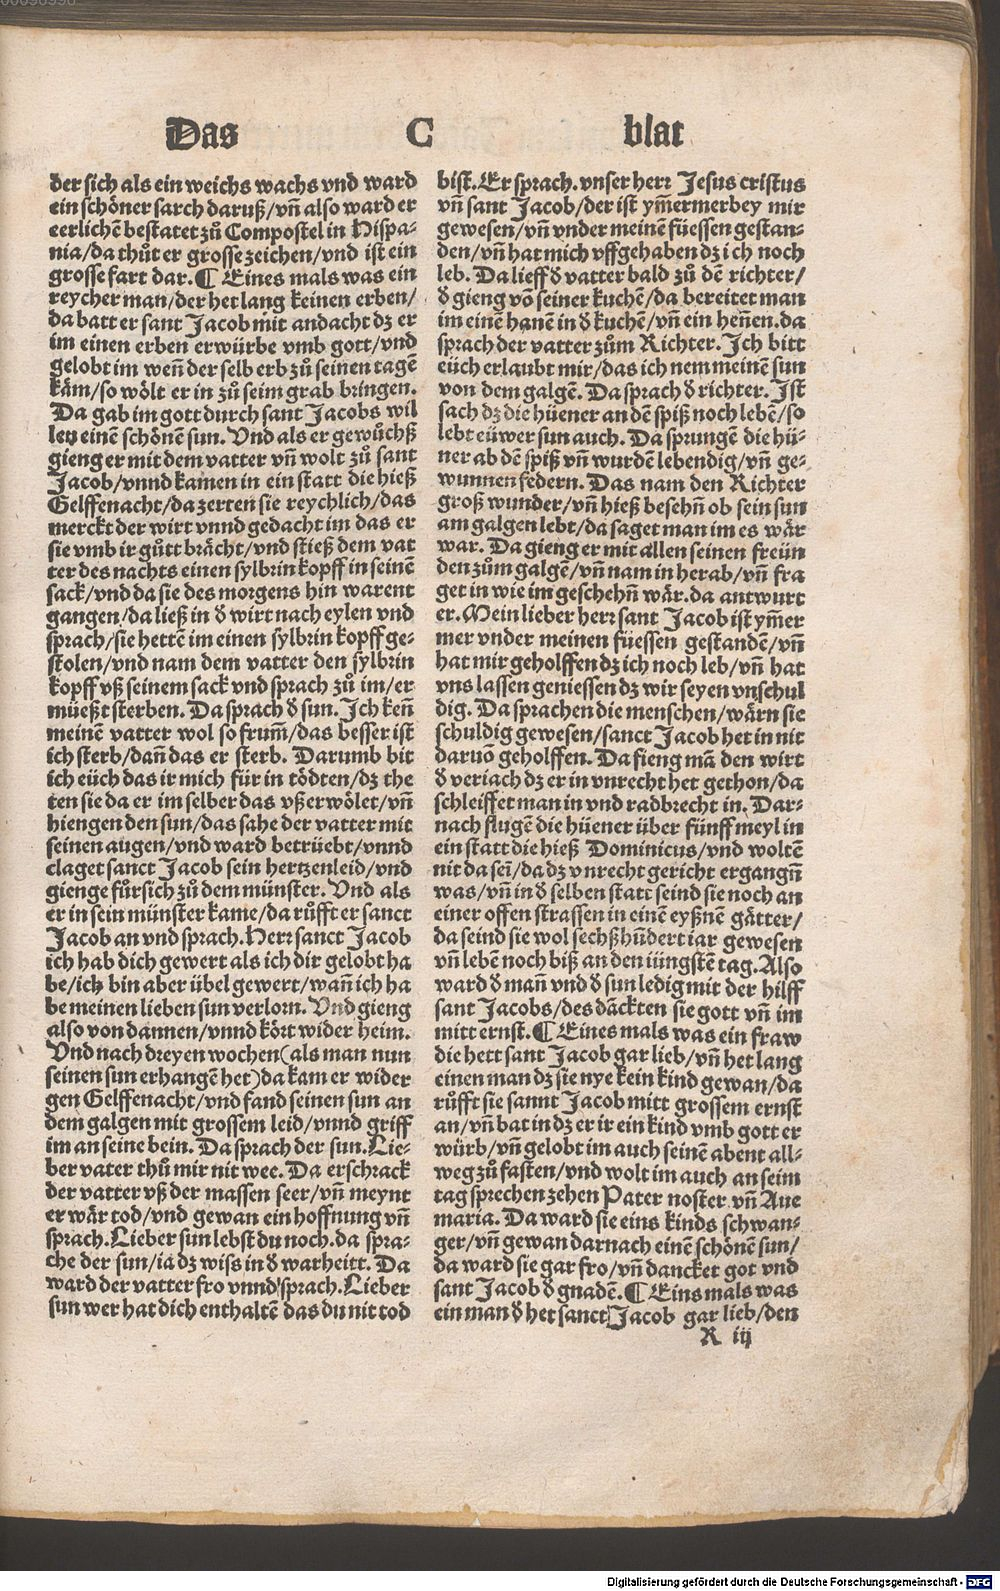 Das C blat
der sich als ein weichs wachs vnd ward
ein schöner sarch daruß/vn̄ also ward er
eerlichē bestatet zů Compostel in Hispa-
nia/da thůt er grosse zeichen/vnd ist ein
grosse fart dar. ¶ Eines mals was ein
reycher man/der het lang keinen erben/
da batt er sant Jacob mit andacht dz er
im einen erben erwürbe vmb gott/vnd
gelobt im wen̄ der selb erb zů seinen tagē
käm/so wölt er in zů seim grab bringen.
Da gab im gott durch sant Jacobs wil
len einē schönē sun. Vnd als er gewůchß
gieng er mit dem vatter vn̄ wolt zů sant
Jacob/vnnd kamen in ein statt die hieß
Gelffenacht/da zerten sie reychlich/das
merckt der wirt vnnd gedacht im das er
sie vmb ir gůtt brächt/vnd stieß dem vat
ter des nachts einen sylbrin kopff in seinē
sack/vnd da sie des morgens hin warent
gangen/da ließ in d̄ wirt nach eylen vnd
sprach/sie hettē im einen sylbrin kopff ge-
stolen/vnd nam dem vatter den sylbrin
kopff vß seinem sack vnd sprach zů im/er
müeßt sterben. Da sprach d̄ sun. Ich ken̄
meinē vatter wol so frum̄/das besser ist
ich sterb/dan̄ das er sterb. Darumb bit
ich eüch das ir mich für in tödten/dz the
ten sie da er im selber das vß erwölet/vn̄
hiengen den sun/das sahe der vatter mit
seinen augen/vnd ward betrüebt/vnnd
claget sanct Jacob sein hertzenleid/vnd
gienge fůrsich zů dem münster. Vnd als
er in sein münster kame/da růfft er sanct
Jacob an vnd sprach. Herr sanct Jacob
ich hab dich gewert als ich dir gelobt ha
be/ich bin aber übel gewert/wan̄ ich ha
be meinen lieben sun verlorn. Vnd gieng
also von dannen/vnnd kört wider heim.
Vnd nach dreyen wochen(als man nun
seinen sun erhangē het)da kam er wider
gen Gelffenacht/vnd fand seinen sun an
dem galgen mit grossem leid/vnnd griff
im an seine bein. Da sprach der sun. Lie-
ber vater thů mir nit wee. Da erschrack
der vatter vß der massen seer/vn̄ meynt
er wär tod/vnd gewan ein hoffnung vn̄
sprach. Lieber sun lebst du noch. da spra-
che der sun/ia dz wiss in d̄ warheitt. Da
ward der vatter fro vnnd sprach. Lieber
sun wer hat dich enthaltē das du nit tod
bist. Er sprach. vnser herr Jesus cristus
vn̄ sant Jacob/der ist ym̄ermerbey mir
gewesen/vn̄ vnder meinē füessen gestan-
den/vn̄ hat mich vffgehaben dz ich noch
leb. Da lieff d̄ vatter bald zů dē richter/
d̄ gieng vō seiner kuchē/da bereitet man
im einē hanē in d̄ kuchē/vn̄ ein hen̄en. da
sprach der vatter zům Richter. Ich bitt
eüch erlaubt mir/das ich nem meinē sun
von dem galgē. Da sprach d̄ richter. Ist
sach dz die hüener an dē spiß noch lebē/so
lebt eüwer sun auch. Da sprungē die hü-
ner ab dē spiß vn̄ wurdē lebendig/vn̄ ge-
wunnen federn. Das nam den Richter
groß wunder/vn̄ hieß besehn̄ ob sein sun
am galgen lebt/da saget man im es wär
war. Da gieng er mit allen seinen freün
den zům galgē/vn̄ nam in herab/vn̄ fra
get in wie im geschehn̄ wär. da antwurt
er. Mein lieber herr sant Jacob ist ym̄er
mer vnder meinen füessen gestandē/vn̄
hat mir geholffen dz ich noch leb/vn̄ hat
vns lassen geniessen dz wir seyen vnschul
dig. Da sprachen die menschen/wärn sie
schuldig gewesen/sanct Jacob het in nit
daruō geholffen. Da fieng mā den wirt
d̄ veriach dz er in vnrecht het gethon/da
schleiffet man in vnd radbrecht in. Dar-
nach flugē die hüener über fünff meyl in
ein statt die hieß Dominicus/vnd woltē
nit da sein̄/da dz vnrecht gericht ergangn̄
was/vn̄ in d̄ selben statt seind sie noch an
einer offen strassen in einē eyßnē gätter/
da seind sie wol sechßhūdert iar gewesen
vn̄ lebē noch biß an den iüngstē tag. Also
ward d̄ man̄ vnd d̄ sun ledig mit der hilff
sant Jacobs/des däckten sie gott vn̄ im
mitt ernst. ¶ Eines mals was ein fraw
die hett sant Jacob gar lieb/vn̄ het lang
einen man dz sie nye kein kind gewan/da
růfft sie sannt Jacob mitt grossem ernst
an/vn̄ bat in dz er ir ein kind vmb gott er
würb/vn̄ gelobt im auch seinē abent all-
weg zů fasten/vnd wolt im auch an seim
tag sprechen zehen Pater noster vn̄ Aue
maria. Da ward sie eins kinds schwan-
ger/vn̄ gewan darnach einē schönē sun/
da ward sie gar fro/vn̄ dancket got vnd
sant Jacob d̄ gnadē. ¶ Eins mals was
ein man d̄ het sanct Jacob gar lieb/den
R iij
Digitalisierung gefördert durch die Deutsche Forschungsgemeinschaft - DFG